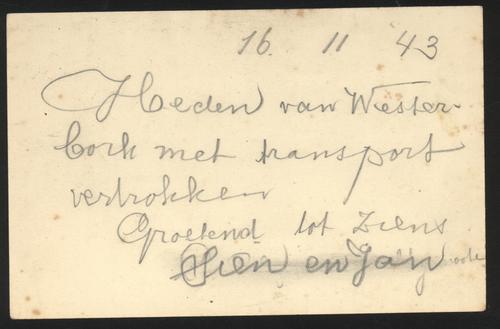 16. 11 43
Heden van Wester-
bork met transport
vertrokken
Groetend tot ziens
Sien en Jan